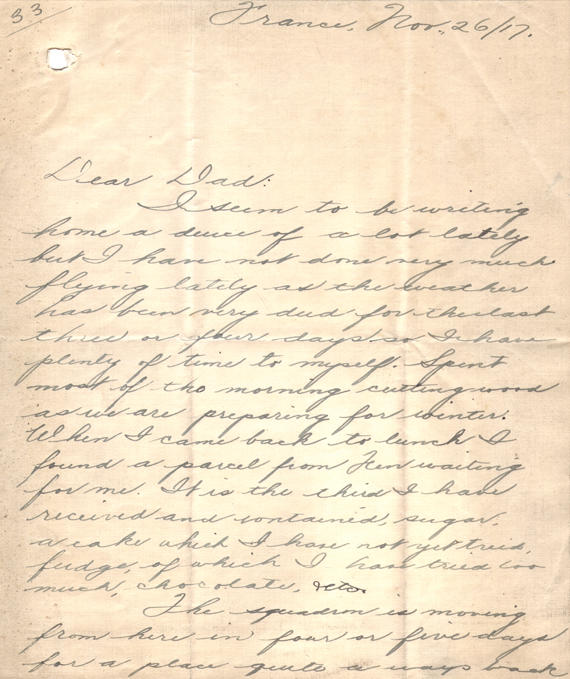 33
France, Nov. 26/17.
Dear Dad:
I seem to be writing
home a deuce of a lot lately
but I have not done very much
flying lately as the weather
has been very dud for the last
three or four days so I have
plenty of time to myself. Spent
most of the morning cutting wood
as we are preparing for winter.
When I came back to lunch I
found a parcel from Ken waiting
for me. It is the third I have
received and contained, sugar,
a cake which I have not yet tried,
fudge, of which I have tried too
much, chocolate, etc.
The squadron is moving
from here in four or five days
for a place quite a ways back